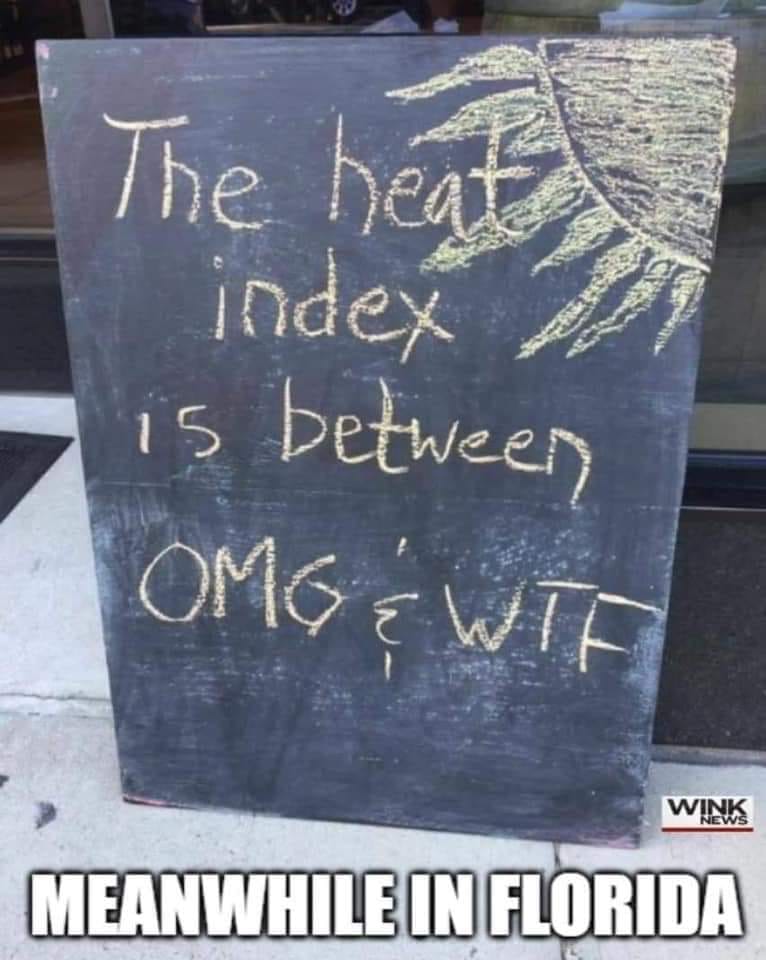 The heat
index
is between
OMG & WTF
WINK
NEWS
MEANWHILE IN FLORIDA